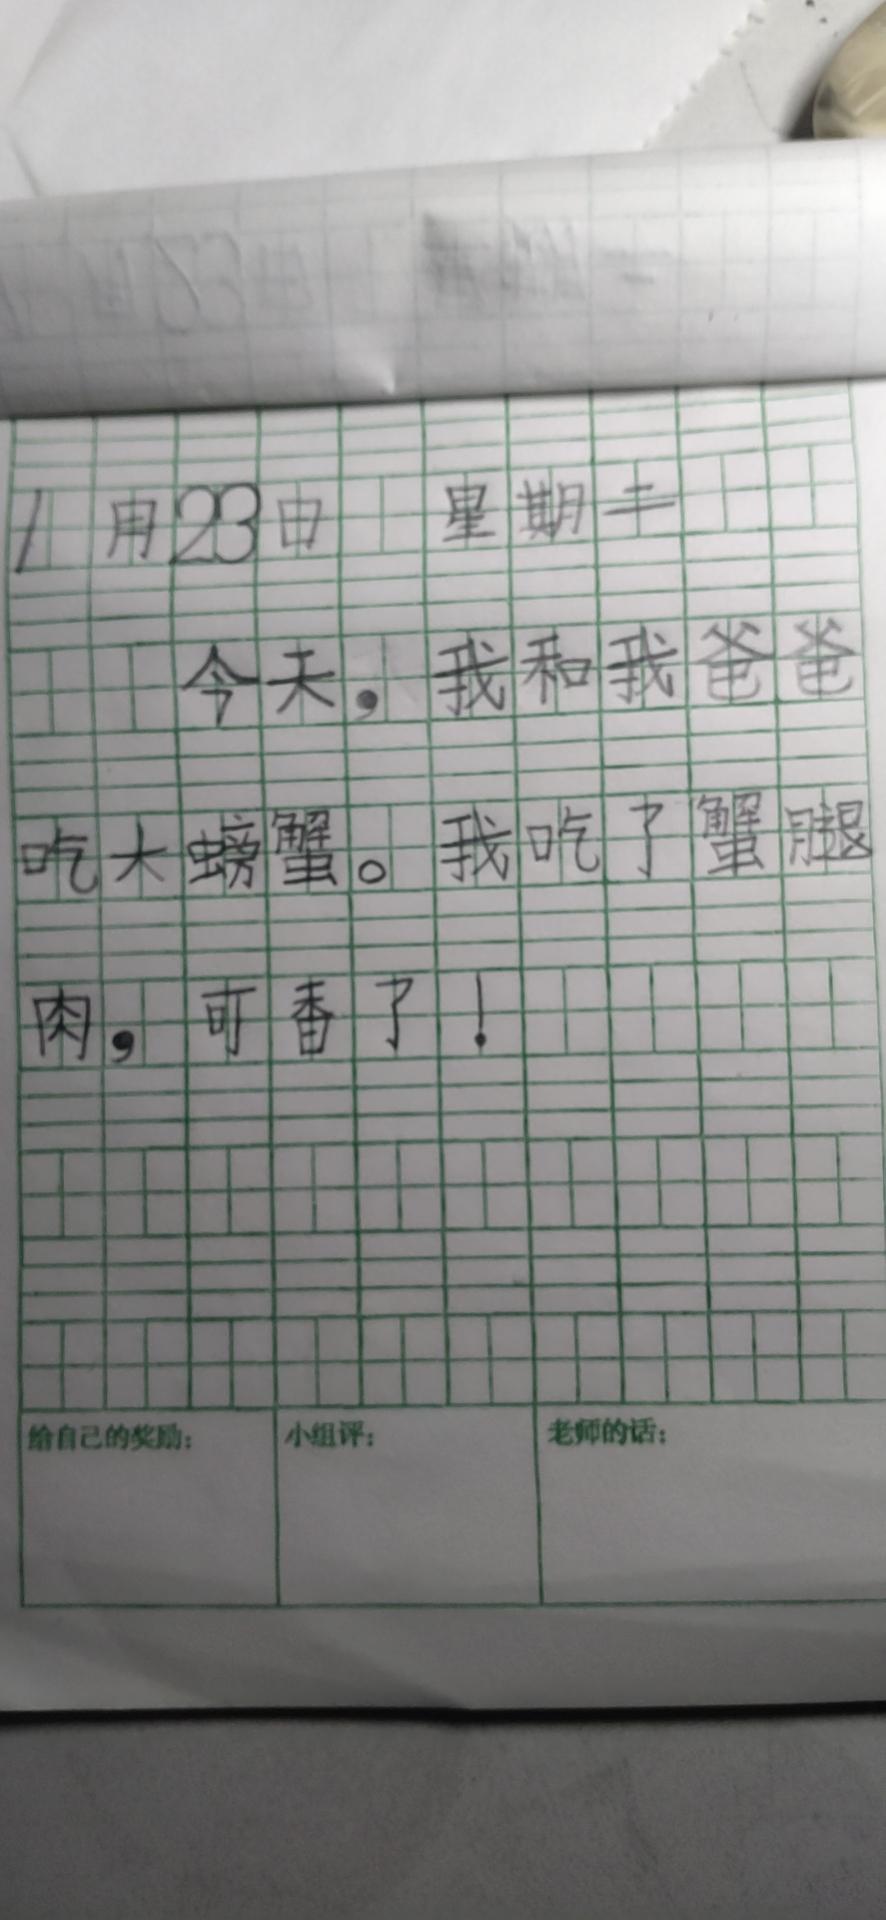 1月23日 星期二
今天，我和我爸爸
吃大螃蟹。我吃了蟹腿
肉，可香了！
给自己的奖励：
小组评：
老师的话：